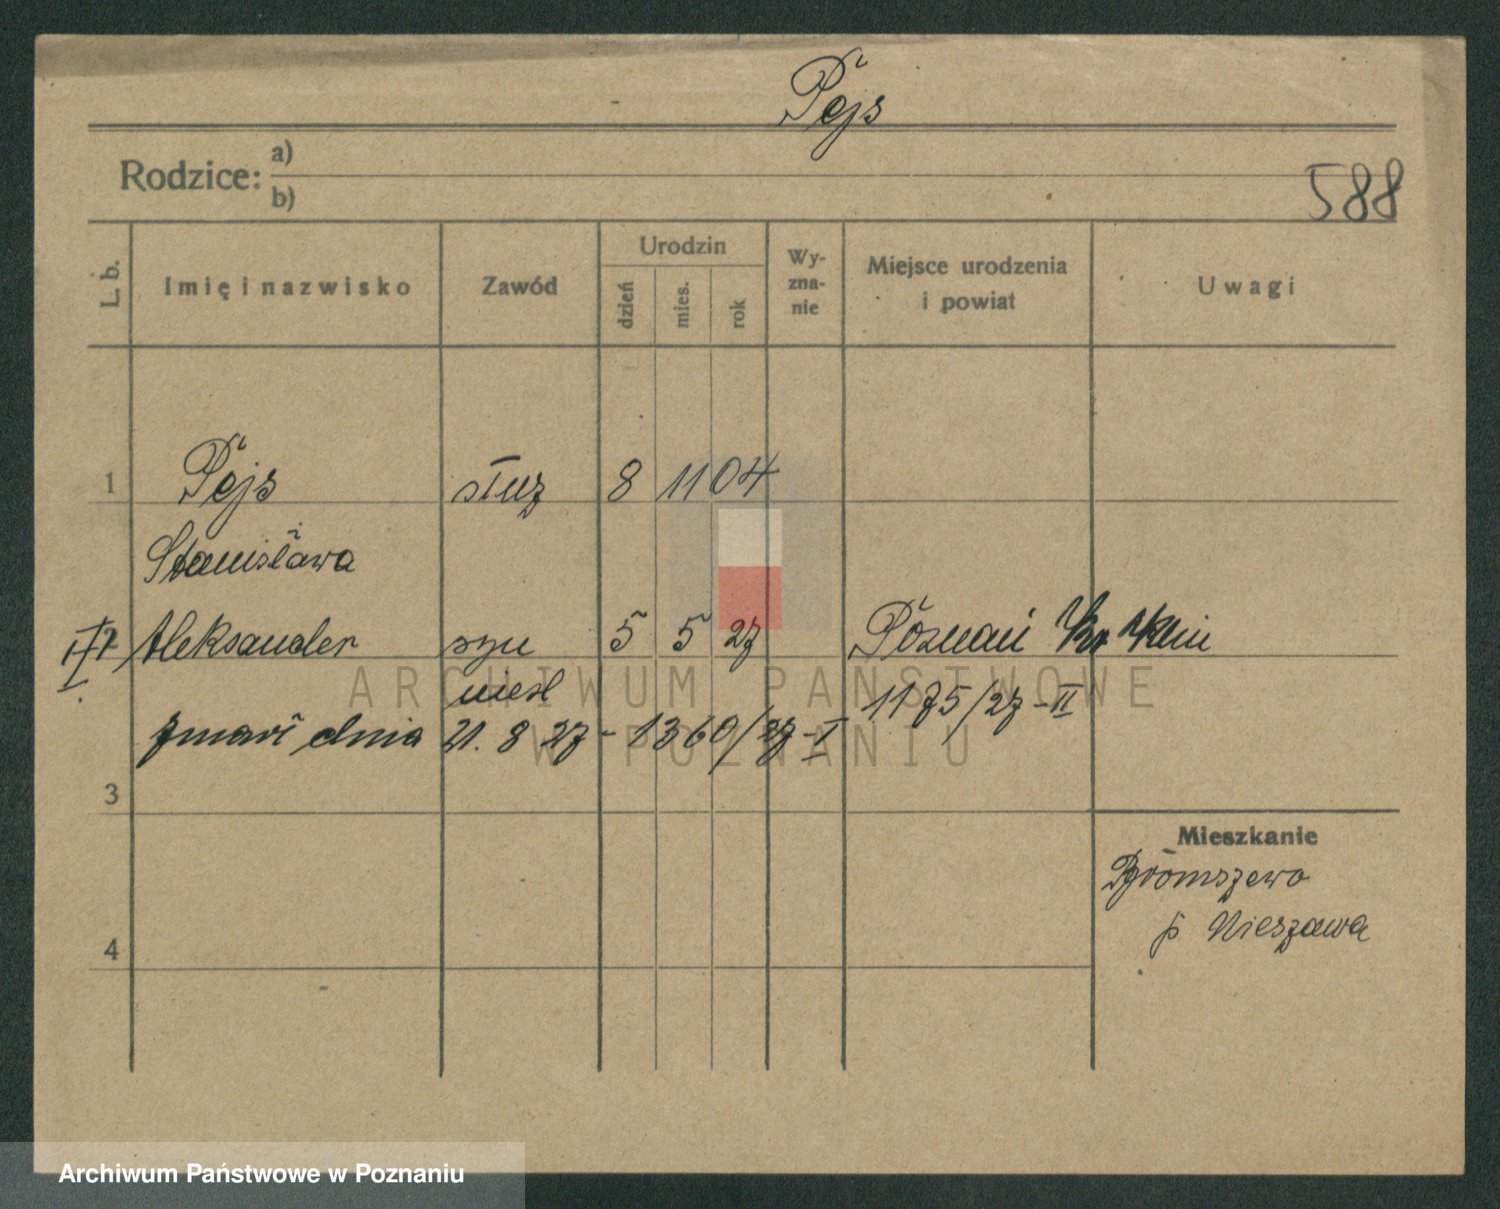 Pejs
Rodzice: a)
b)
588
L. b.
Imię i nazwisko
Zawód
Urodzin
dzień
mies.
rok
Wy-
zna-
nie
Miejsce urodzenia
i powiat
Uwagi
1 Pejs służ 8 11 04
Stanisława
2 Aleksander syn 5 5 27 Poznań
niesl 1175/27-II
zmarł dnia 21. 8 27 - 1360/27-I
3
Mieszkanie
p Nieszawa
4
ARCHIWUM PAŃSTWOWE
W POZNANIU
Archiwum Państwowe w Poznaniu